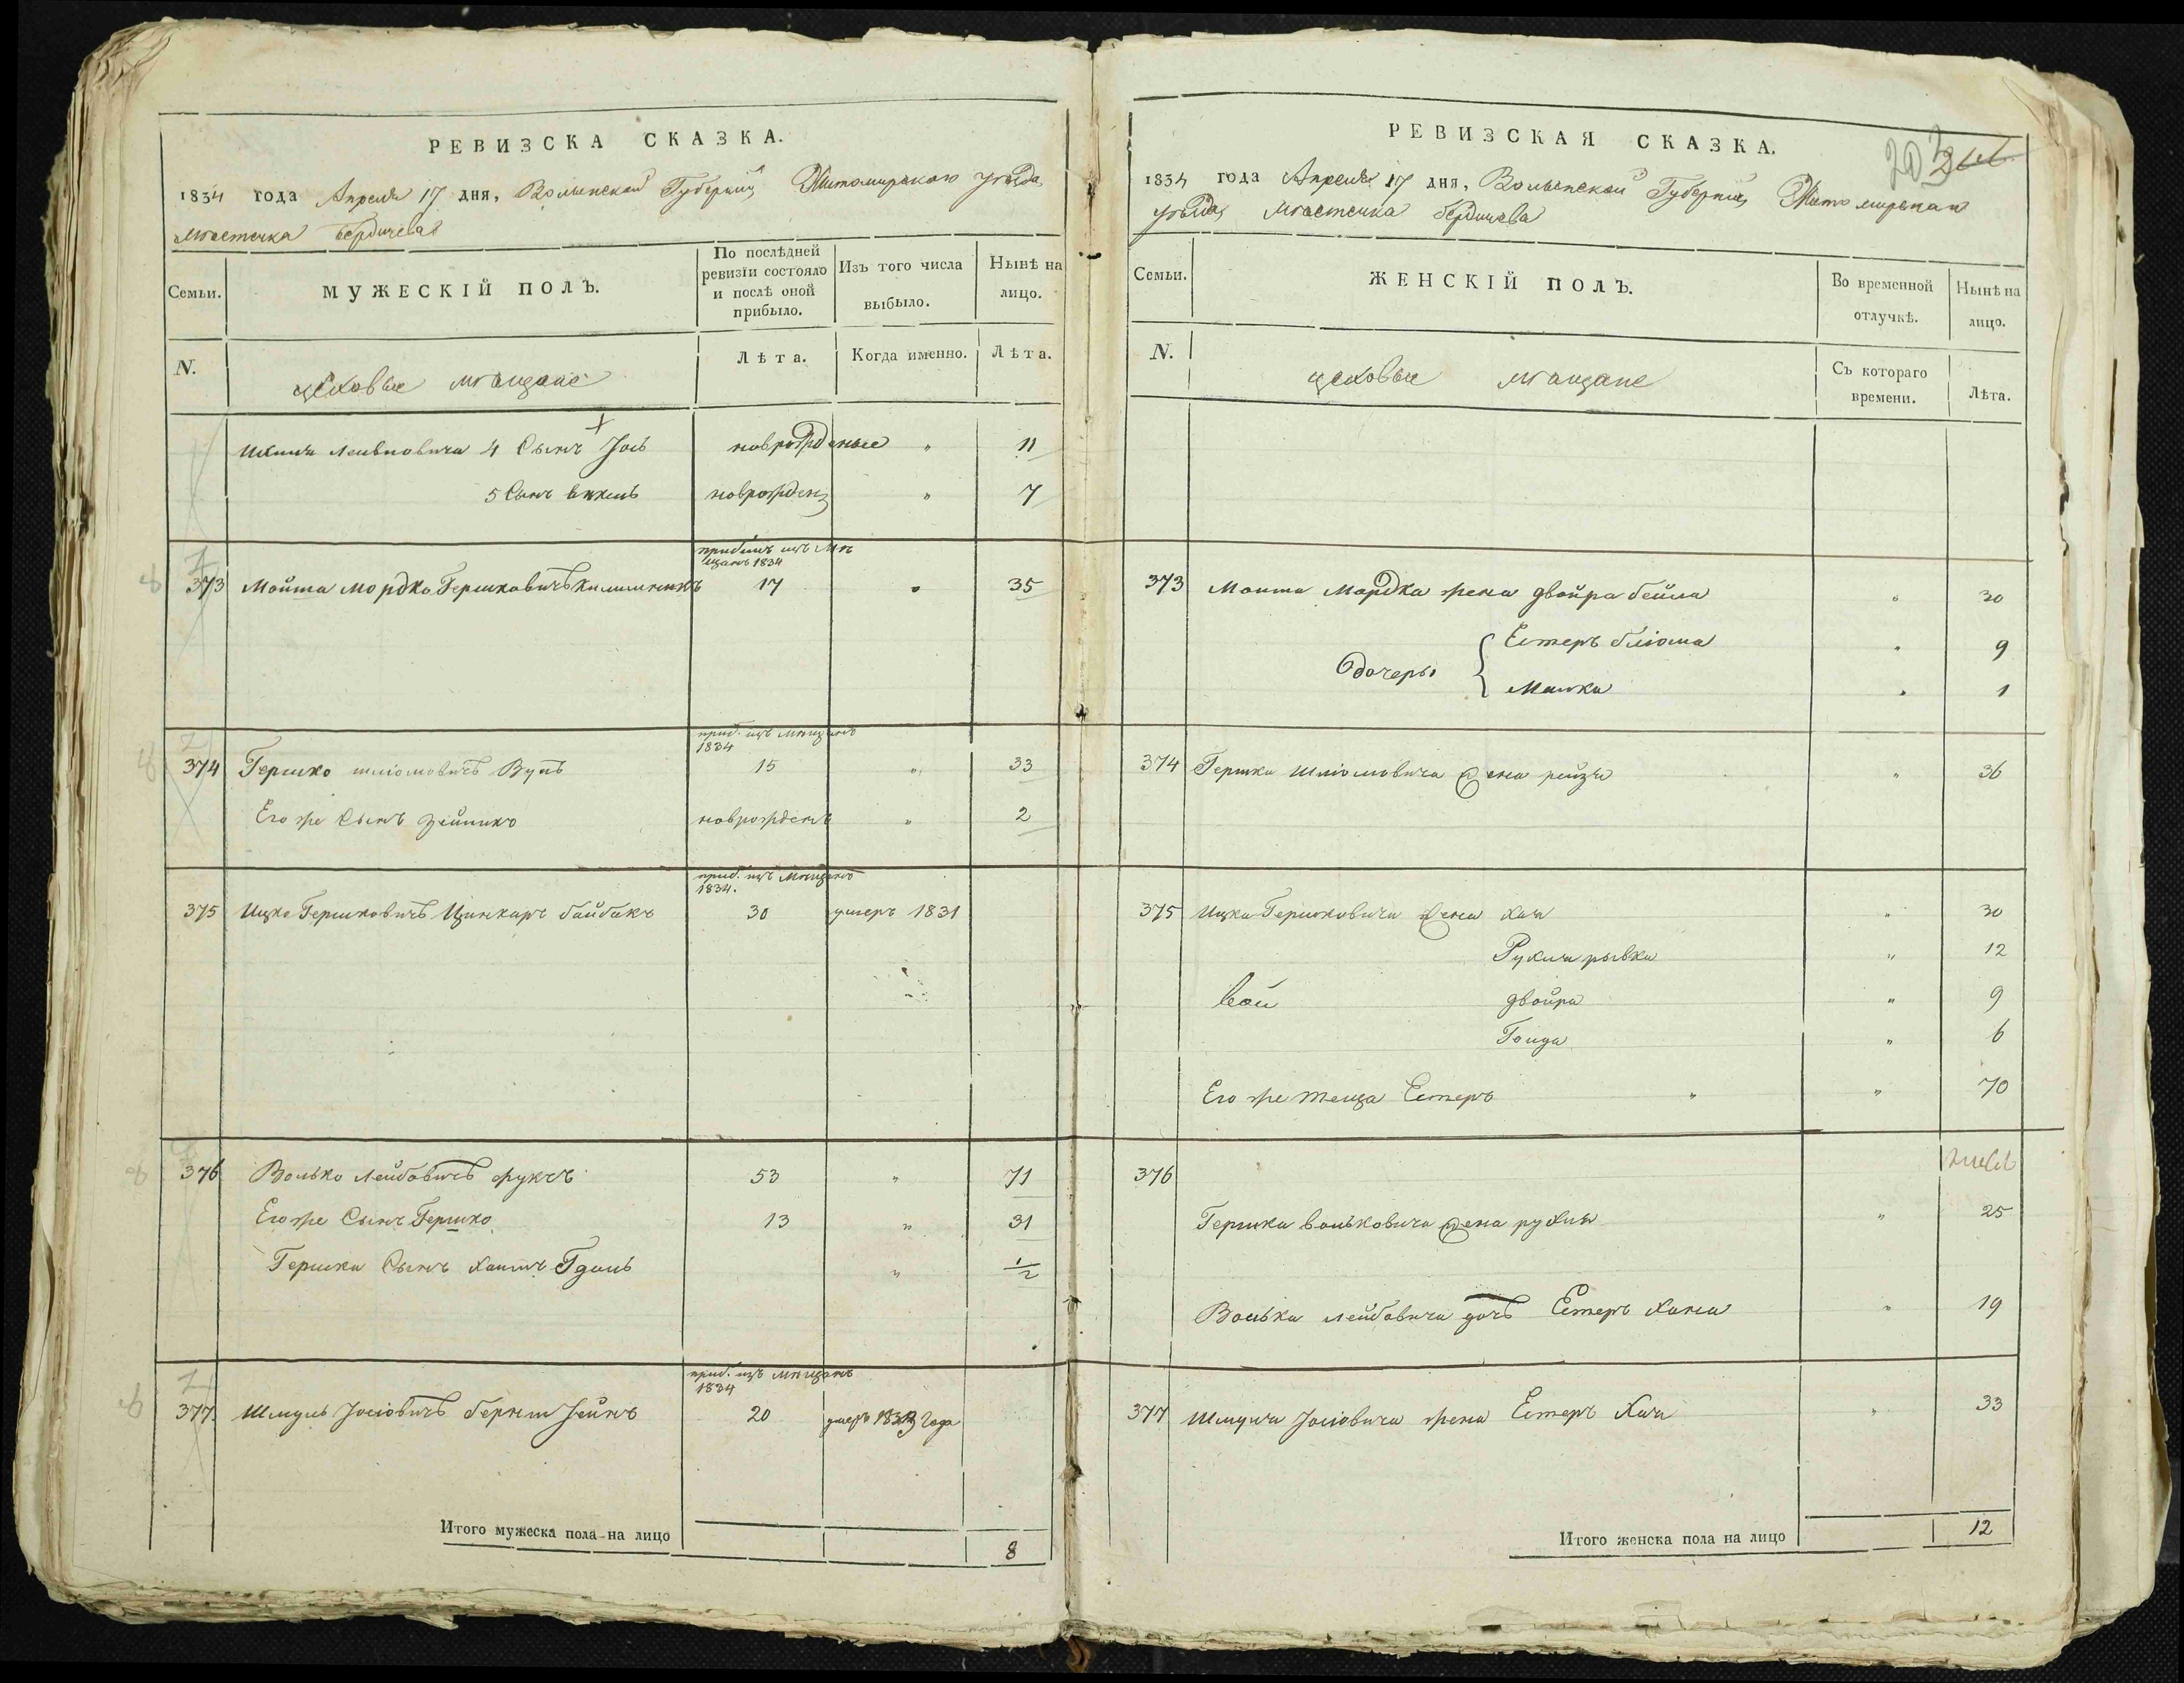 РЕВИЗСКА СКАЗКА.
1834 года Апреля 17 дня, Волынской Губерніи Житомирскаго уѣзда
мѣстечка Бердичева
Семьи.
МУЖЕСКІЙ ПОЛЪ.
По послѣдней ревизіи состояло и послѣ оной прибыло.
Изъ того числа выбыло.
Нынѣ на лицо.
N.
Лѣта.
Когда именно.
Лѣта.
цеховые мѣщане
Лейбовича 4 Сынъ Іось новорожденые " 11
5 Сынъ новорожден " 7
прибылъ изъ Мѣ
щанъ 1834
373 Мошка Мордко Гершковичъ 17 " 35
приб. изъ Мѣщанъ
1834
374 Гершко Шліомовичъ 15 " 33
Его же Сынъ новорожденъ " 2
приб. изъ Мѣщанъ
1834.
375 Ицко Гершковичъ Цинкаръ байбакъ 30 умеръ 1831
376 Волько Лейбовичъ Жукъ 53 " 71
Его же Сынъ Гершко 13 " 31
Гершка Сынъ Хаимъ Гдаль " 1/2
приб. изъ Мѣщанъ
1834
377 Шмуль Іосіовичъ 20 умеръ 1833 года
Итого мужеска пола на лицо 8
РЕВИЗСКАЯ СКАЗКА.
203
1834 года Апреля 17 дня, Волынской Губерніи Житомирскаго
уѣзда мѣстечка Бердичева
Семьи.
ЖЕНСКІЙ ПОЛЪ.
Во временной отлучкѣ.
Нынѣ на лицо.
N.
Съ котораго времени.
Лѣта.
цеховые мѣщане
373 Мошка Мордка жена двойра бейла " 30
дочеры
Естеръ бліома " 9
Малка " 1
374 Гершка Шліомовича жена рейзя " 36
375 Ицка Гершковича жена хая " 30
Рухля рывка " 12
двойра " 9
" 6
Его же теща Естеръ " " 70
376
Гершка вольковича жена рухля " 25
Волька лейбовича дочъ Естеръ хана " 19
377 Шмуля Іосіовича жена Естеръ Хая " 33
Итого женска пола на лицо 12